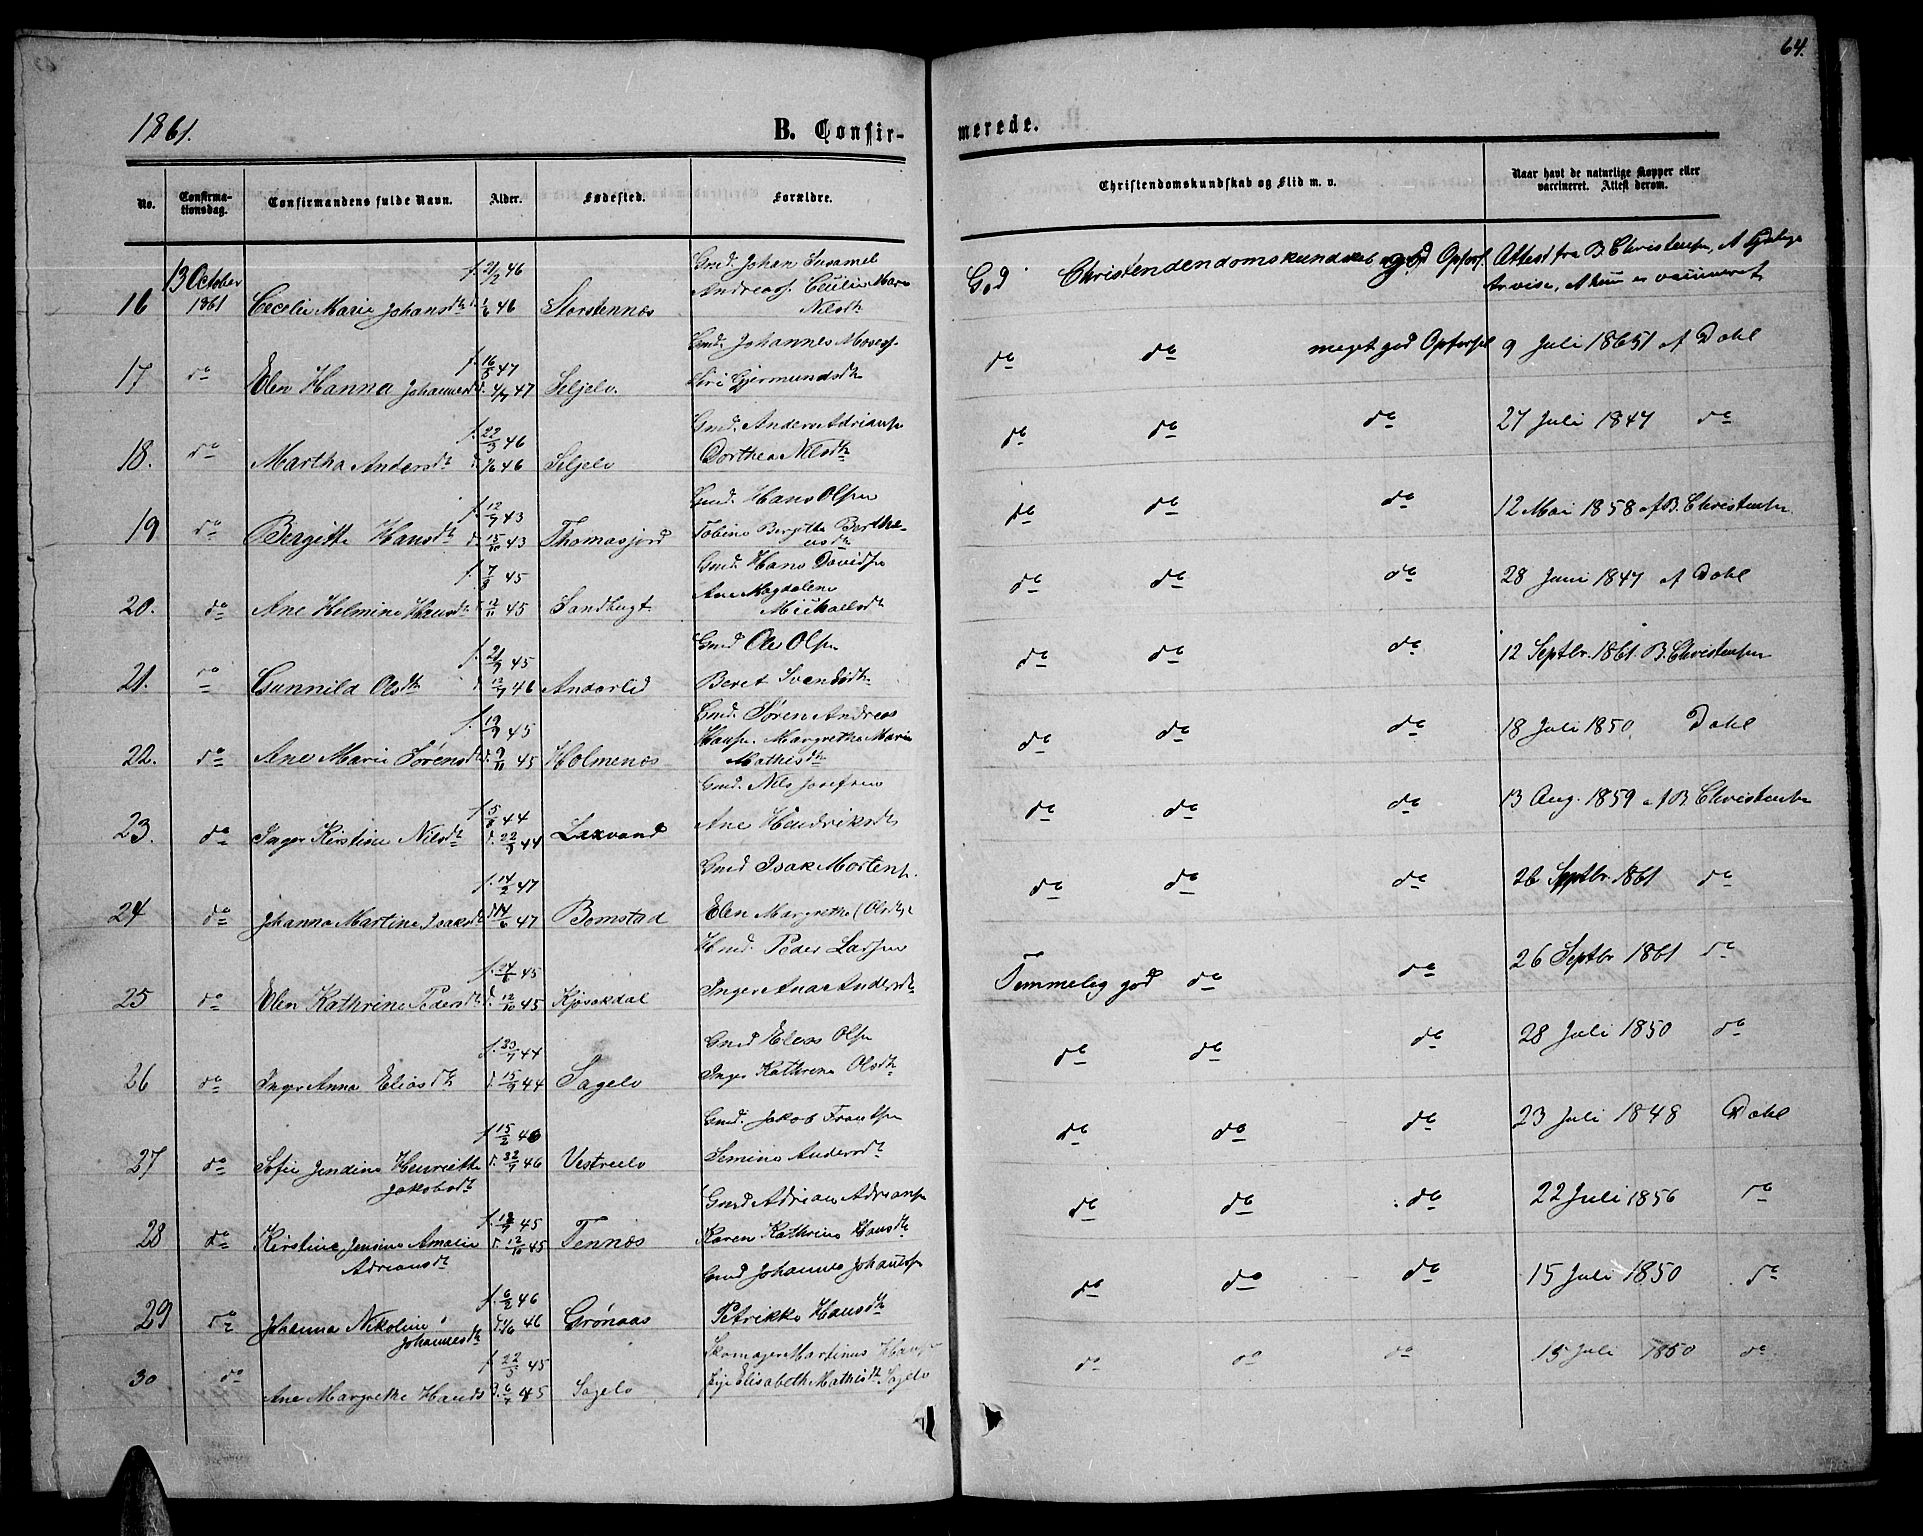 64.
1861.
B. Confir-
merede.
No.
Confirma-
tionsdag.
Confirmandens fulde Navn.
Alder.
Fødested.
Forældre.
Christendomskundskab og Flid m. v.
Naar havt de naturlige Kopper eller
vaccineret. Attest derom.
13 October
1861
16 Cecilie Marie Johansdtr f. 21/2 46 Storstennæs
Gmd. Johan Susamel
Andreass. Cecilie Marie
Nilsdtr
God Christendendomskundskab god Opførs. Attest fra B. Christensen
17 do Elen Hanna Johannesd f. 16/5 47 Seljelv.
Gmd. Johannes Moses
Siri Gjermundsdtr
do do meget god Opførsel 9 Juli 1851 af Dahl
18. do Martha Andersdtr f. 22/3 46 Seljelv
Gmd. Anders Adriansen
Dorthea Nilsdtr
do do do 27 Juli 1847 do
19 do Bergitte Hansdtr f. 12/9 43 d. 15/10 43 Thomasjord
Gmd. Hans Olsen
Tobine Bergitte Berthe-
usdtr
do do do 12 Mai 1858 af B. Christensen
20. do Ane Helmine Hansdtr f. 7/9 45 d. 12/11 45 Sandbugt
Gmd. Hans Davidsen
Ane Magdalena
Mikkelsdtr
do do do 28 Juni 1847 af Dahl
21. do Gunnild Olsdtr f. 21/9 45 Anderlid
Gmd Ole Olsen
Beret Svendsdtr
do do do 12 Septbr. 1861. B. Christensen
22. do Ane Marie Sørensdtr f. 19/9 45 d. 9/11 45 Holmenæs
Gmd. Søren Andreas
Hansen. Margrethe Marie
Mathisdtr
do do do 18 Juli 1850, Dahl
23. do Inger Kirstine Nilsdtr f. 5/8 44 d. 22/9 44 Laxvand
Gmd. Nils Josefsen
Ane Hendriksdtr
do do do 13 Aug. 1859 af B Christensen
24 do Johanna Martine Isaksdtr f. 14/2 47 Bomstad
Gmd Isak Mortens.
Elen Margrethe Olsdtr
do do do 26 Septbr 1861 do
25 do Elen Kathrine Pedersdtr d. 12/10 45 Kjosakdal
Hmd. Peder Larsen
Inger Ana Andersdtr
Temmelig god do do 26 Septbr 1861 do
26 do Inger Anna Eliasdtr f. 30/7 44 d. 15/9 44 Sagelv
Gmd Elias Olsen
Inger Kathrine Olsdtr
do do do 28 Juli 1850 do
27 do Sofie Jendine Henriette f. 15/2 46 Vestreelv
Jakobsdtr
Gmd. Jakob Frantsen
Semine Andersdtr
do do do 23 Juli 1848 Dahl
28 do Kirstine Jensine Amalie d. 12/10 45 Tennæs
Adriansdtr
Gmd Adrian Adriansen
Karen Kathrine Hansdtr
do do do 22 Juli 1856 do
29 do Johanna Nikoline f. 6/2 46 Grønaas
Johannesdtr
Gmd Johannes Johannessen
Petrikke Hansdtr
do do do 15 Juli 1850 do
30 do Ane Margrethe Hansd f. 22/5 45 d. 6/7 45 Sagelv
Skomager Martinus
Elisabeth Mathisdtr Sagelv
do do do 15 Juli 1850 do